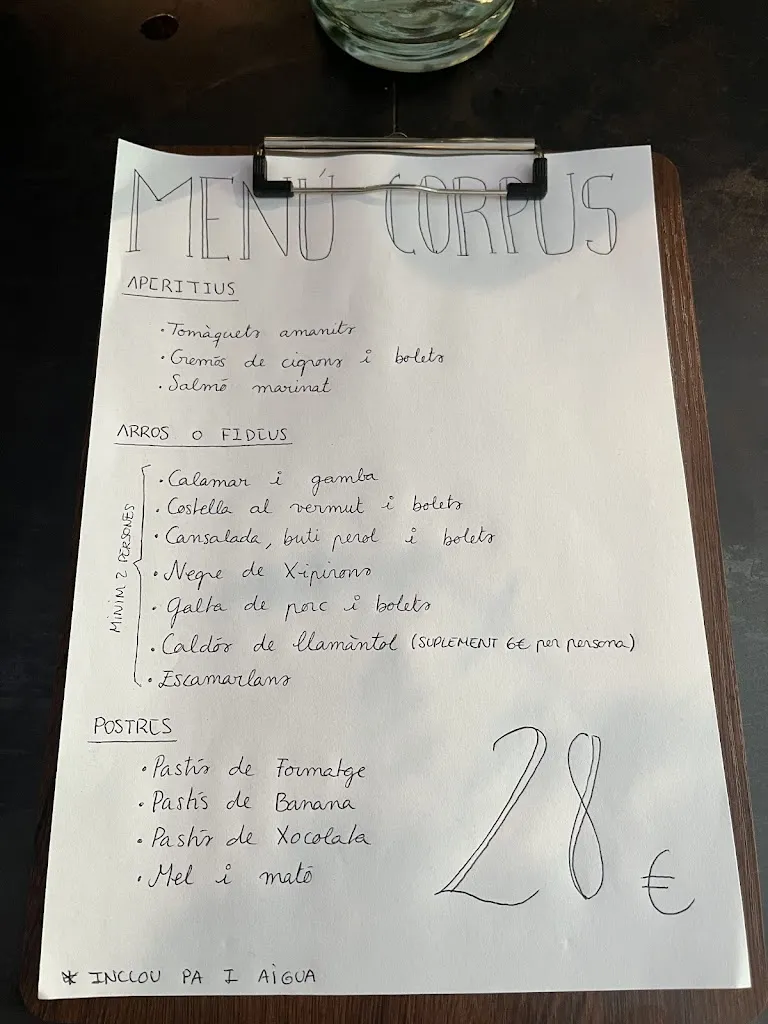 MENÚ CORPUS
APERITIUS
· Tomàquets amanits
· Cremós de cigrons i bolets
· Salmó marinat
ARROS O FIDEUS
MINIM 2 PERSONES
· Calamar i gamba
· Costella al vermut i bolets
· Cansalada, buti perol i bolets
· Negre de Xipirons
· Galta de porc i bolets
· Caldós de llamàntol (SUPLEMENT 6€ per persona)
· Escamarlans
POSTRES
· Pastís de Formatge
· Pastís de Banana
· Pastís de Xocolata
· Mel i mató
28 €
* INCLOU PA I AIGUA